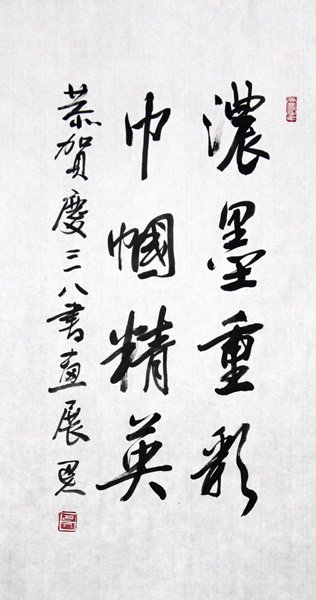 濃墨重彩
巾幗精英
恭賀慶三八書畫展